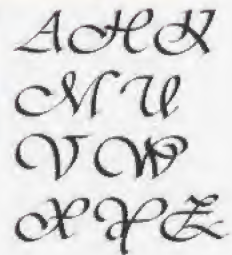 A H K
M U
V W
X Y Z